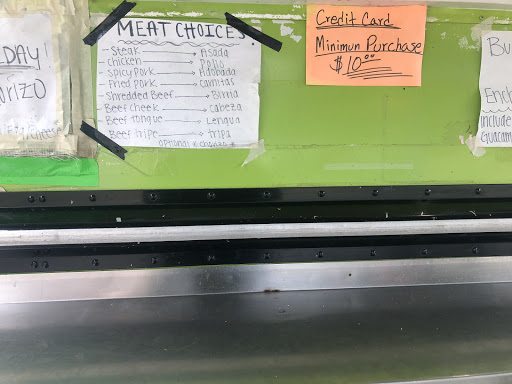 DAY!
orizo
MEAT CHOICES!
-Steak → Asada
-Chicken → Pollo
-Spicy Pork → Adobada
-Fried pork → carnitas
-Shredded Beef → Birria
-Beef cheek → Cabeza
-Beef tongue → Lengua
-Beef tripe → tripa
Credit Card
Minimun Purchase
$10.00
Bu
Ench
include
Guacam